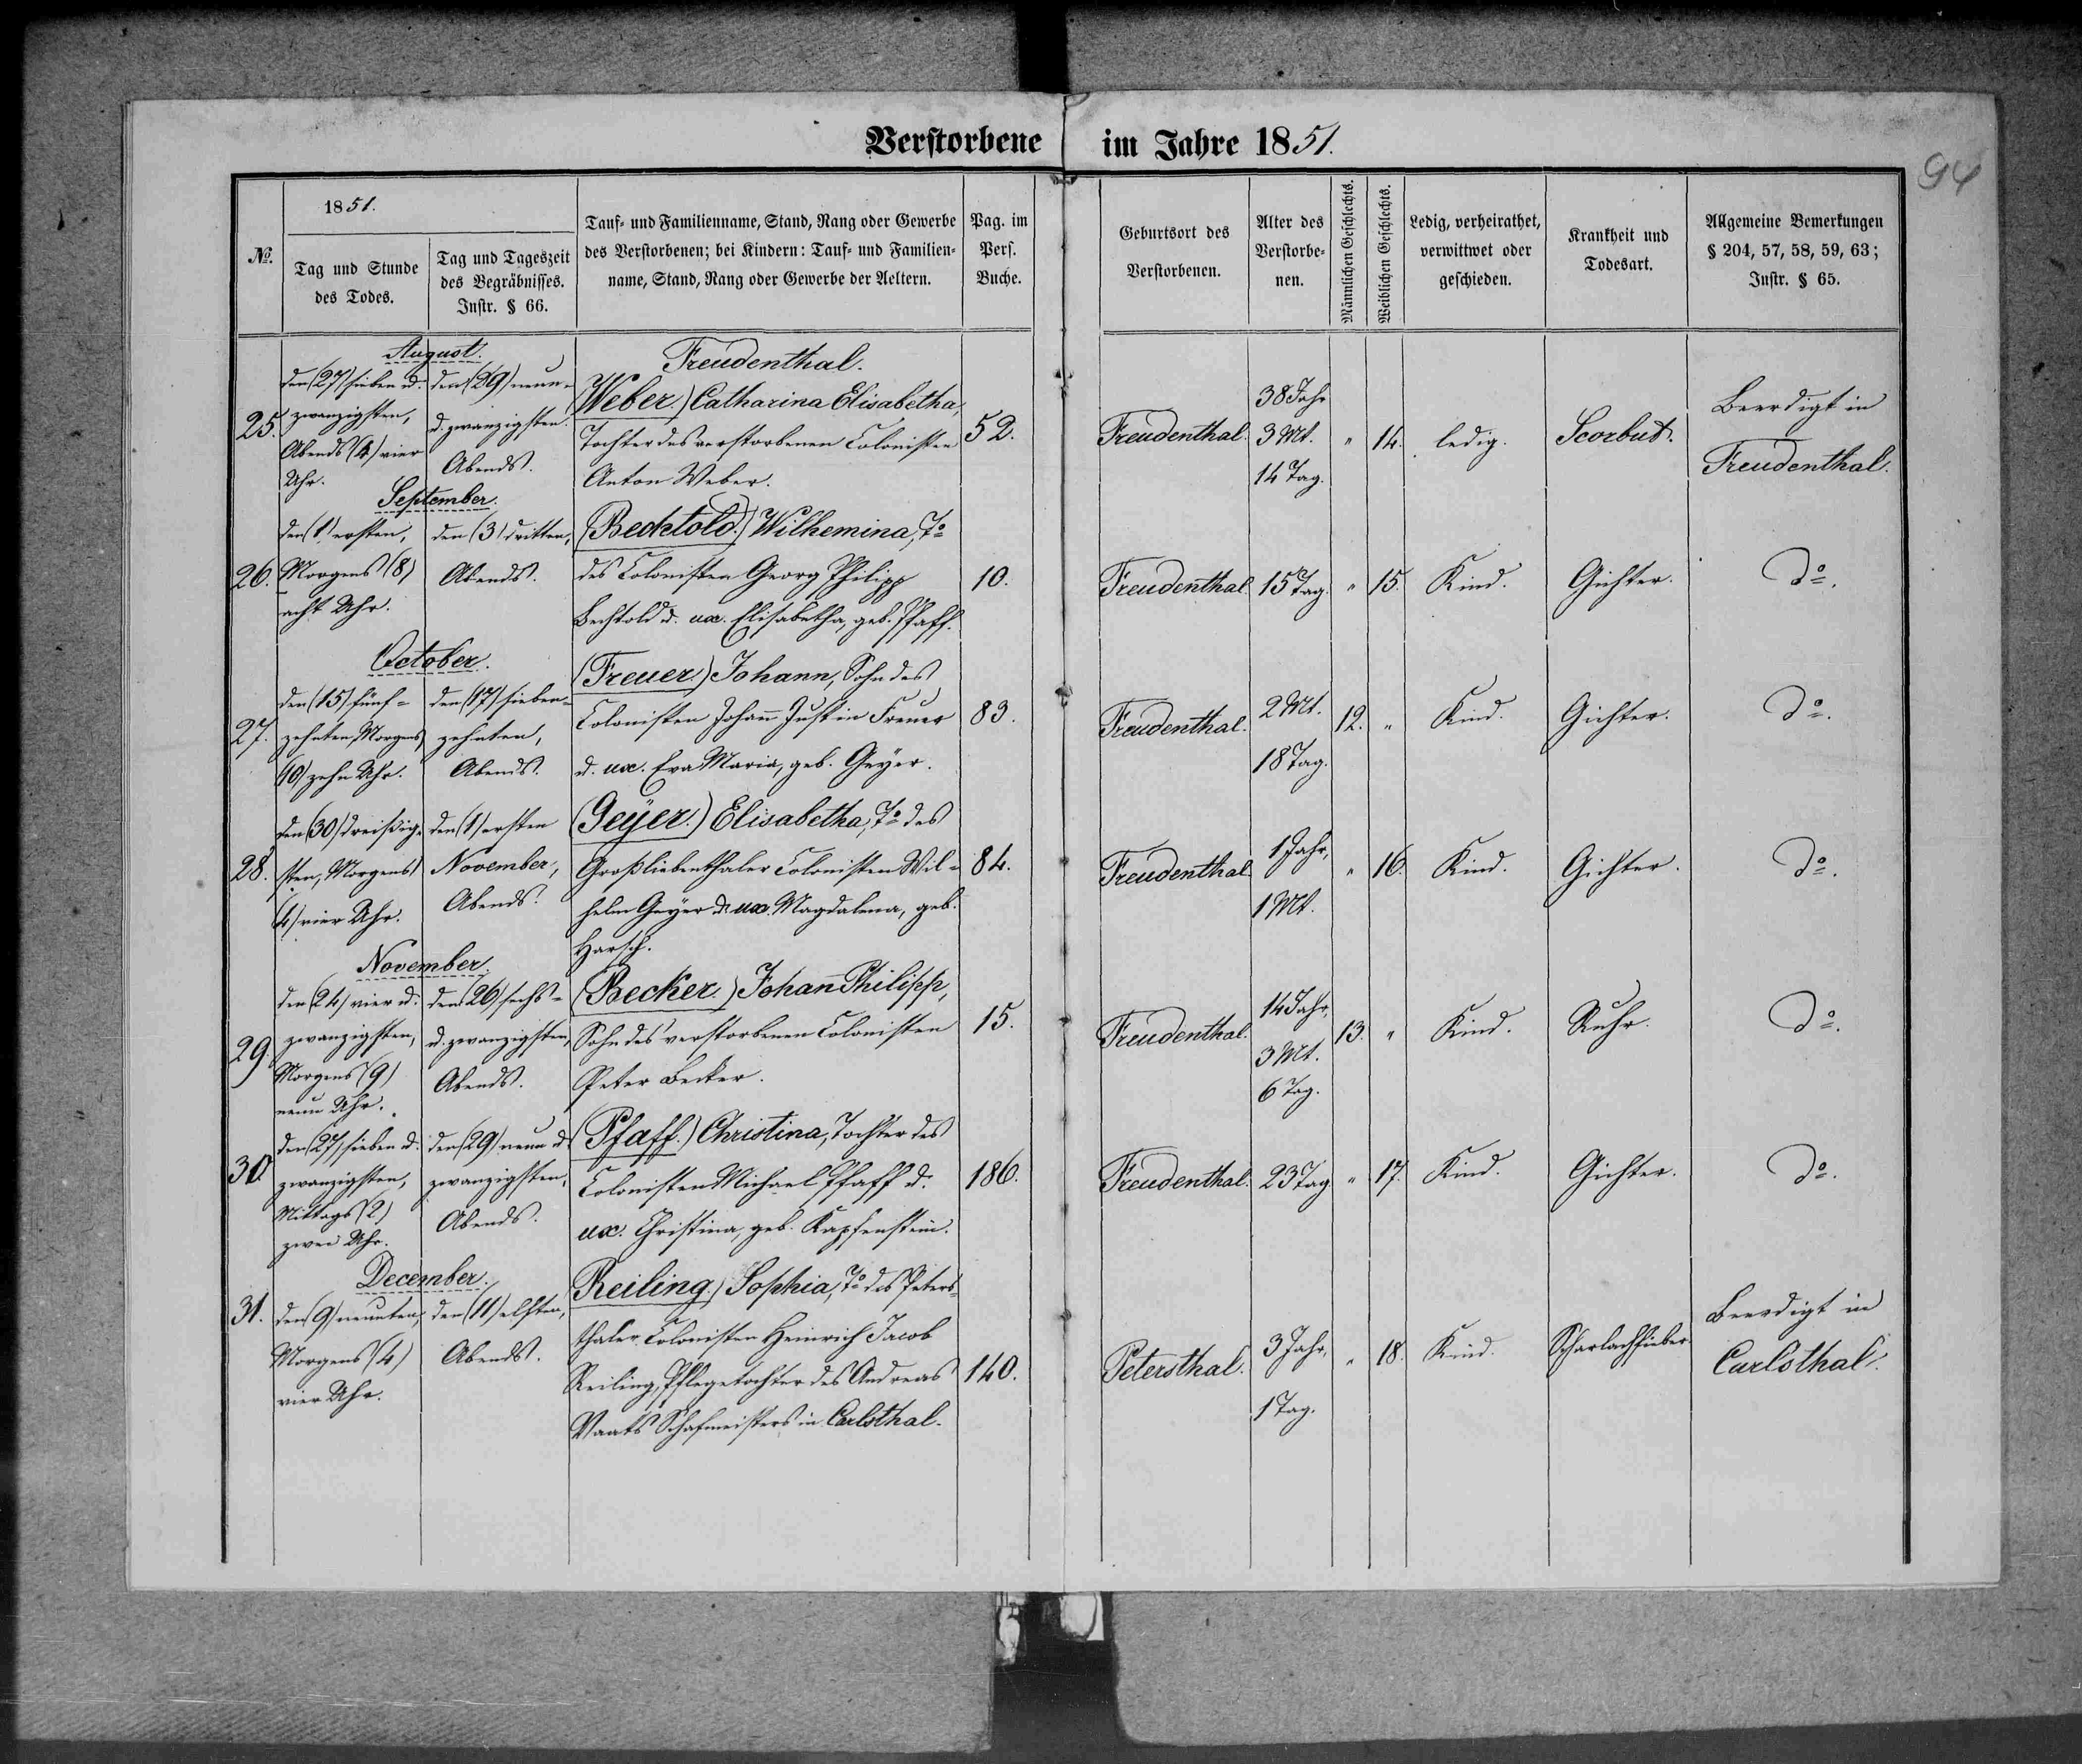 Verstorbene im Jahre 1851.
94
1851.
№.
Tag und Stunde
des Todes.
Tag und Tageszeit
des Begräbnisses.
Instr. § 66.
Tauf- und Familienname, Stand, Rang oder Gewerbe
des Verstorbenen; bei Kindern: Tauf- und Familien-
name, Stand, Rang oder Gewerbe der Aeltern.
Pag. im
Pers.
Buche.
Geburtsort des
Verstorbenen.
Alter des
Verstorbe-
nen.
Männlichen Geschlechts.
Weiblichen Geschlechts.
Ledig, verheirathet,
verwittwet oder
geschieden.
Krankheit und
Todesart.
Allgemeine Bemerkungen
§ 204, 57, 58, 59, 63;
Instr. § 65.
August.
25.
den (27) sieben u.
zwanzigsten,
Abends (4) vier
Uhr.
den (29) neun-
u. zwanzigsten.
Abends.
Freudenthal.
(Weber.) Catharina Elisabetha,
Tochter des verstorbenen Colonisten
Anton Weber.
52.
Freudenthal.
38 Jahr
3 Mt.
14 Tag.
" 14.
ledig.
Scorbut.
Beerdigt in
Freudenthal.
September.
26.
den (1) ersten,
Morgens (8)
acht Uhr.
den (3) dritten,
Abends.
(Bechtold.) Wilhemina, To
des Colonisten Georg Philipp
Bechtold u. ux. Elisabetha, geb. Pfaff.
10.
Freudenthal.
15 Tag.
" 15.
Kind.
Gichter.
do.
October.
27.
den (15) fünf-
zehnten, Morgens
(10) zehn Uhr.
den (17) sieben-
zehnten,
Abends.
(Freuer.) Johann, Sohn des
Colonisten Johañ Justin Freuer
u. ux. Eva Maria, geb. Geyer.
83.
Freudenthal.
2 Mt.
18 Tag.
12. "
Kind.
Gichter.
do.
28.
den (30) dreißig-
sten, Morgens
(4) vier Uhr.
den (1) ersten
November,
Abends.
(Geÿer.) Elisabetha, To des
Großliebenthaler Colonisten Wil-
helm Geyer u. ux. Magdalena, geb.
Harsch.
84.
Freudenthal.
1 Jahr,
1 Mt.
" 16.
Kind.
Gichter.
do.
November.
29.
den (24) vier u.
zwanzigsten,
Morgens (9)
neun Uhr.
den (26) sechs-
u. zwanzigsten,
Abends.
(Becker.) Johañ Philipp,
Sohn des verstorbenen Colonisten
Peter Becker.
15.
Freudenthal.
14 Jahr,
3 Mt.
6 Tag.
13. "
Kind.
Ruhr.
do.
30.
den (27) sieben u.
zwanzigsten,
Mittags (2)
zwei Uhr.
den (29) neun u.
zwanzigsten,
Abends.
(Pfaff.) Christina, Tochter des
Colonisten Michael Pfaff u.
ux. Christina, geb. Kapfenstein.
186.
Freudenthal.
23 Tag
" 17.
Kind.
Gichter.
do.
December.
31.
den (9) neunten,
Morgens (4)
vier Uhr.
den (11) elften,
Abends.
(Reiling.) Sophia, To des Peters-
thaler Colonisten Heinrich Jacob
Reiling, Pflegetochter des Andreas
Schafmeisters in Carlsthal.
140.
Petersthal.
3 Jahr,
1 Tag.
" 18.
Kind.
Scharlachfieber.
Beerdigt in
Carlsthal.